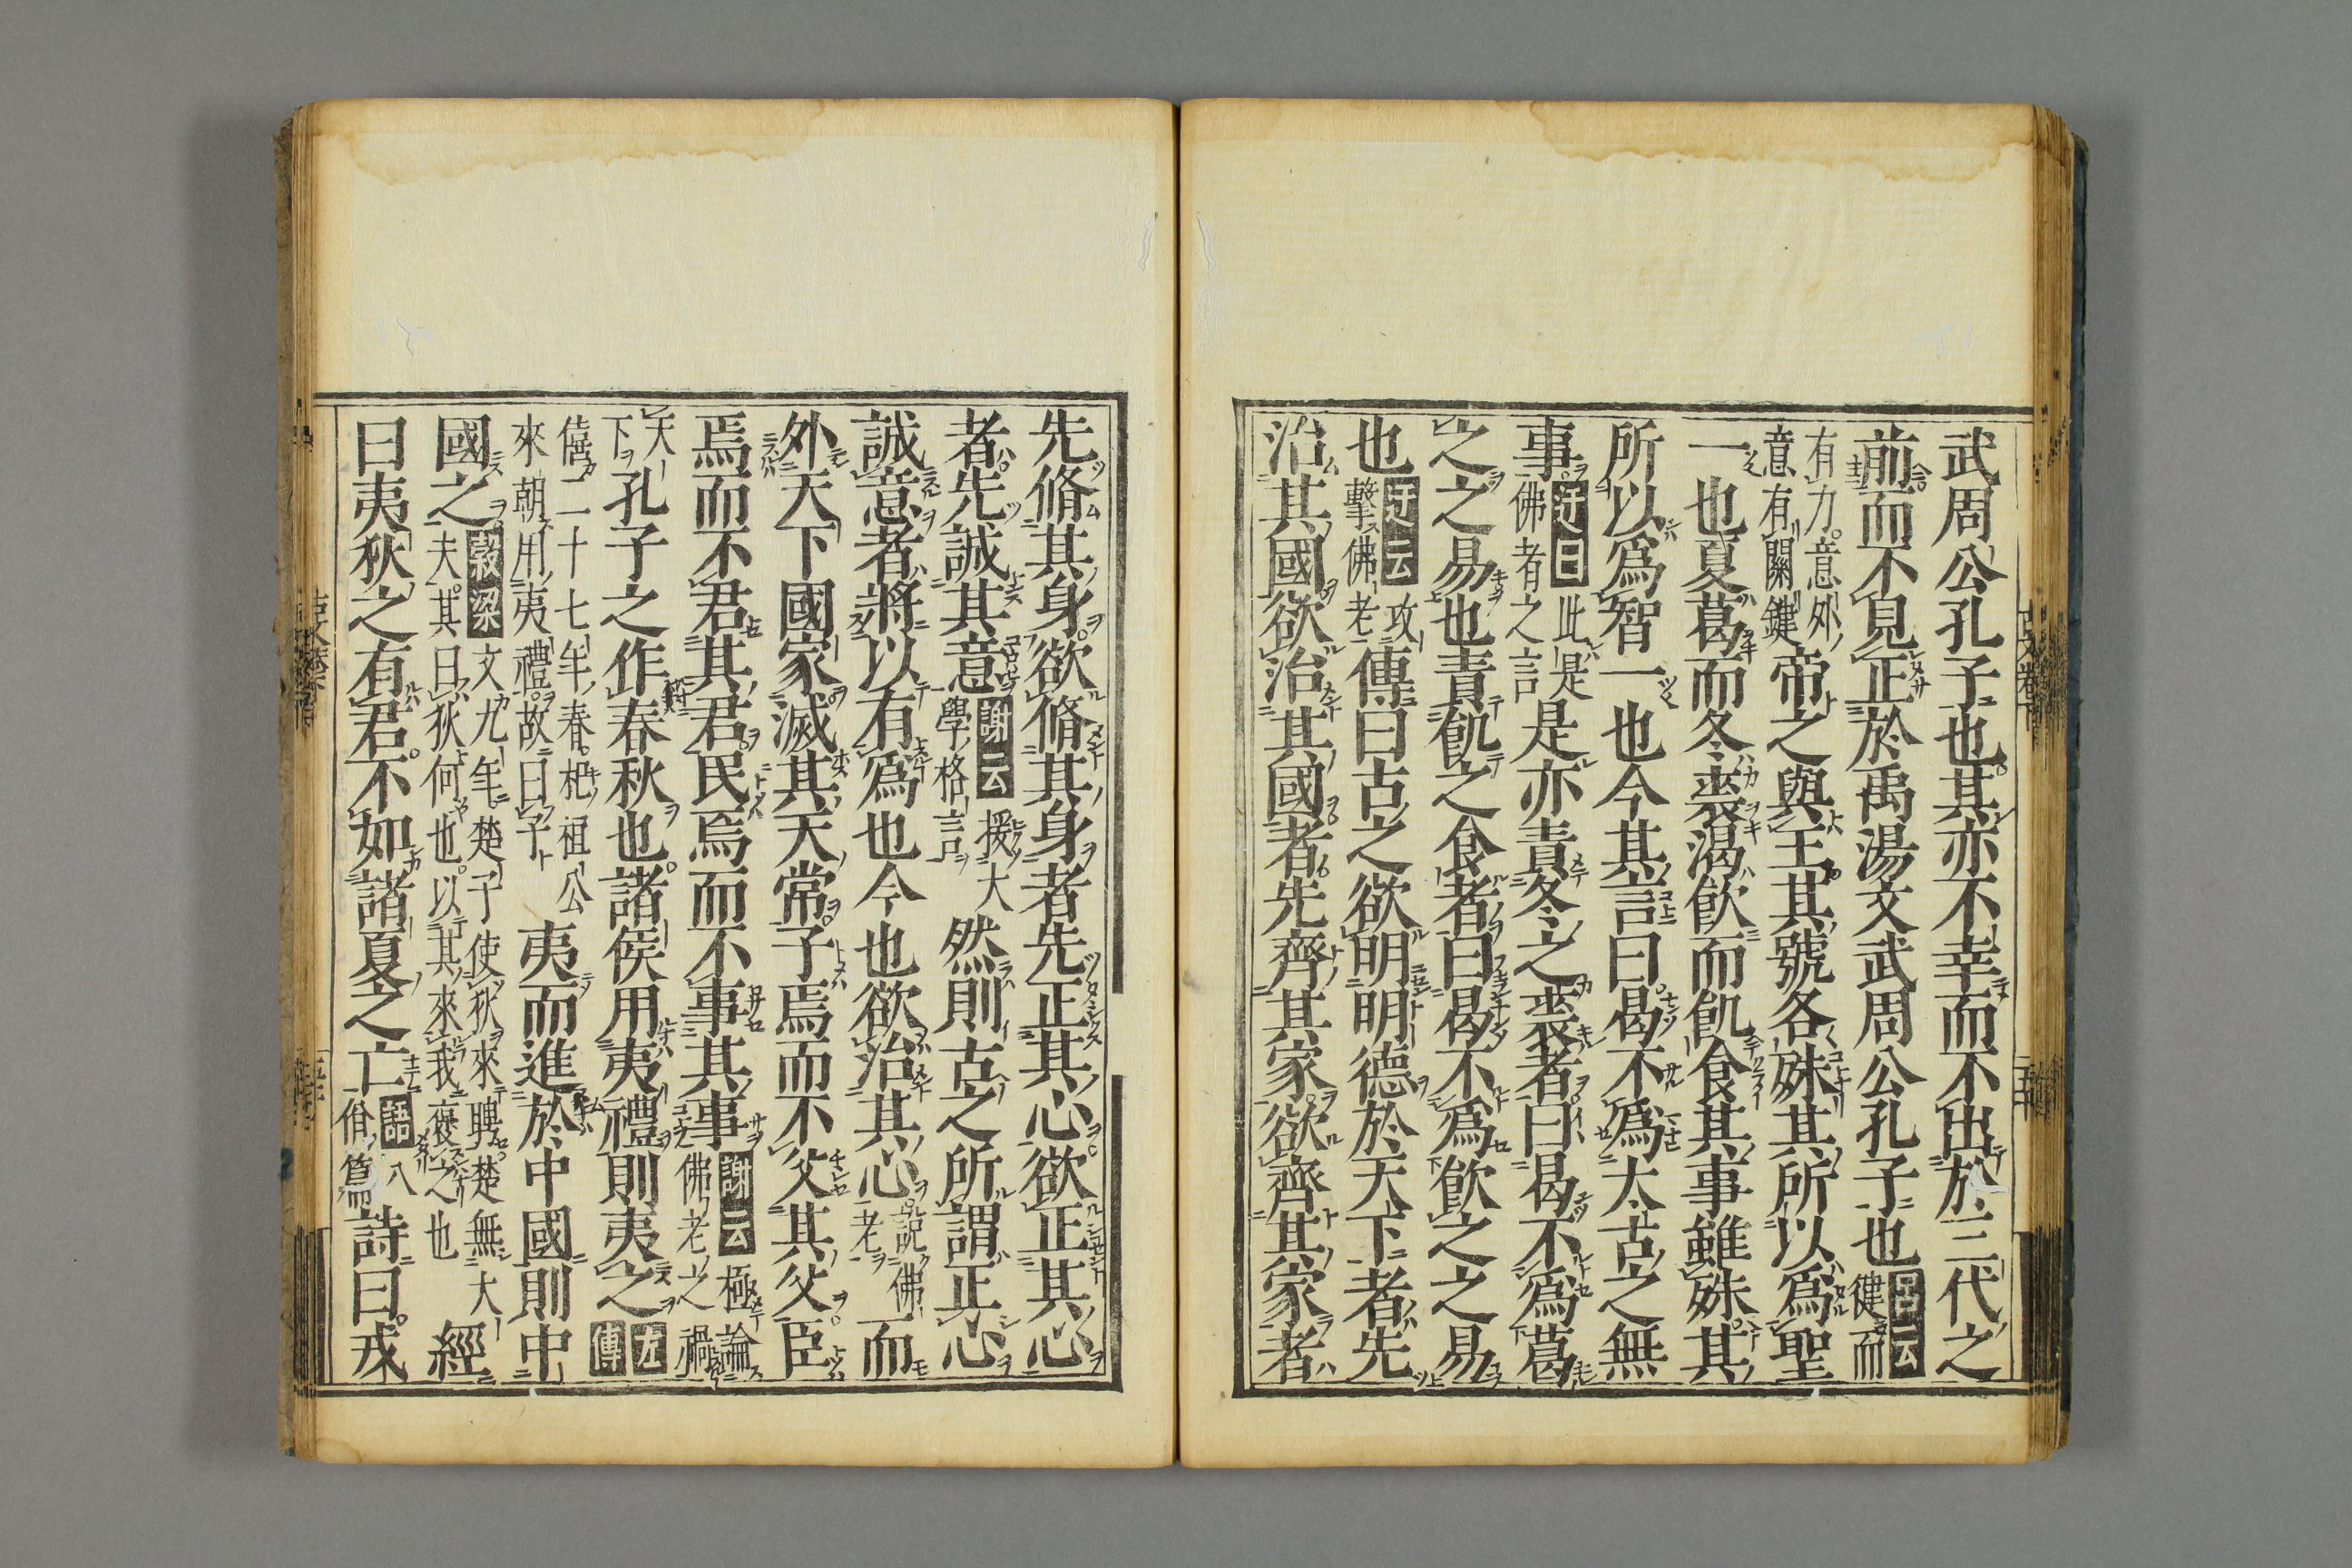 武周公孔子也其亦不幸而不出於三代之
前而不見正於禹湯文武周公孔子也呂云健而
有力意外意有關鍵帝之與王其號各殊其所以爲聖
一也夏葛而冬裘渴飲而飢食其事雖殊其
所以爲智一也今其言曰曷不爲太古之無
事迂曰此是佛者之言是亦責冬之裘者曰曷不爲葛
之之易也責飢之食者曰曷不爲飲之之易
也迂云攻擊佛老傳曰古之欲明明德於天下者先
治其國欲治其國者先齊其家欲齊其家者
先脩其身欲脩其身者先正其心欲正其心
者先誠其意謝云援大學格言然則古之所謂正心
誠意者將以有爲也今也欲治其心說佛老而
外天下國家滅其天常子焉而不父其父臣
焉而不君其君民焉而不事其事謝云極論佛老之禍
天下孔子之作春秋也諸侯用夷禮則夷之左傳
僖二十七年春杞祖公來朝用夷禮故曰子夷而進於中國則中
國之穀梁文九年楚子使狄來聘楚無大夫其曰狄何也以其來我褒之也經
曰夷狄之有君不如諸夏之亡語八佾篇詩曰戎